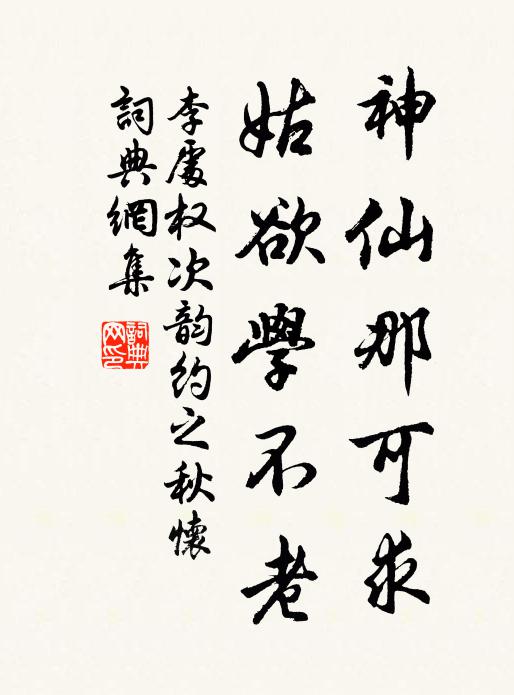 神仙那可求
姑欲學不老
李處权次韵約之秋懷
詞典網集
詞典網印